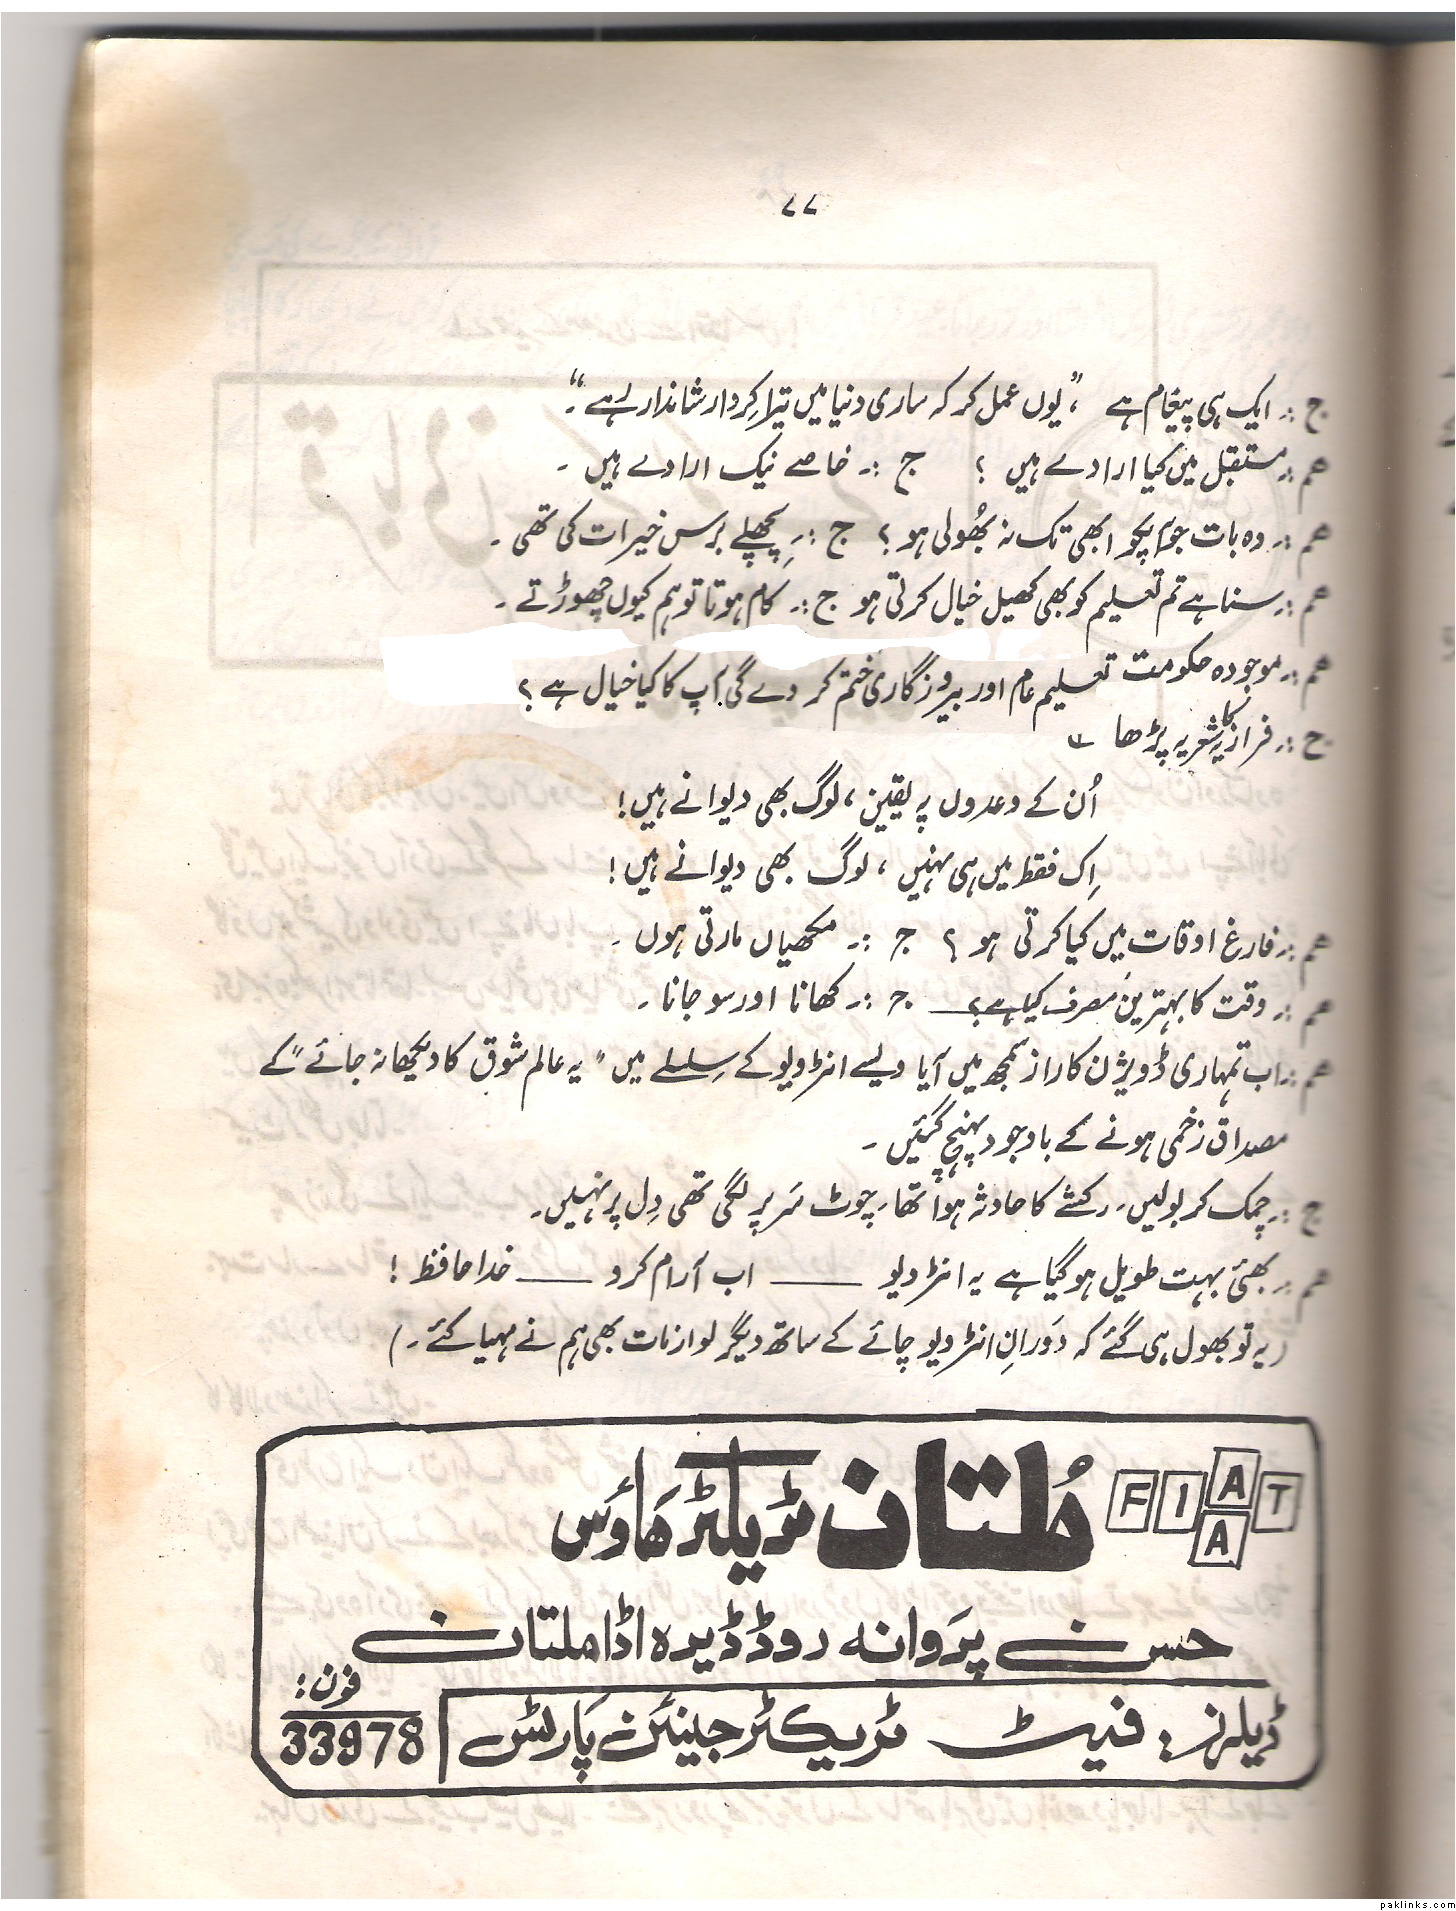 ۷۷
ج :۔ ایک ہی پیغام ہے ،"یوں عمل کر کہ ساری دنیا میں تیرا کردار شاندار رہے"۔
ھم :۔ مستقبل میں کیا ارادے ہیں ؟ ج :۔ خاصے نیک ارادے ہیں ۔
ھم :۔ وہ بات جو آپکو ابھی تک نہ بھُولی ہو ؟ ج :۔ پچھلے برس خیرات کی تھی ۔
ھم :۔ سنا ہے تم تعلیم کو بھی کھیل خیال کرتی ہو ج :۔ کام ہوتا تو ہم کیوں چھوڑتے ۔
ھم :۔ موجودہ حکومت تعلیم عام اور بیروزگاری ختم کر دے گی آپ کا کیا خیال ہے ؟
ج :۔ فراز کا یہ شعر پڑھا ؎
اُن کے وعدوں پہ یقین ، لوگ بھی دیوانے ہیں !
اِک فقط میں ہی نہیں ، لوگ بھی دیوانے ہیں !
ھم :۔ فارغ اوقات میں کیا کرتی ہو ؟ ج :۔ مکھیاں مارتی ہوں ۔
ھم :۔ وقت کا بہترین مصرف کیا ہے ؟ ج :۔ کھانا اور سو جانا ۔
ھم :۔ اب تمہاری ڈویژن کا راز سمجھ میں آیا ویسے انٹرویو کے سِلسلے میں "یہ عالم شوق کا دیکھا نہ جائے" کے
مصداق زخمی ہونے کے باوجود پہنچ گئیں ۔
ج :۔ چمک کر بولیں۔ رکشے کا حادثہ ہوا تھا۔ چوٹ سَر پر لگی تھی دِل پر نہیں۔
ھم :۔ بھئی بہت طویل ہو گیا ہے یہ انٹرویو ــــــ اب آرام کرو ــــــ خدا حافظ !
(یہ تو بھول ہی گئے کہ دَورانِ انٹرویو چائے کے ساتھ دیگر لوازمات بھی ہم نے مہیا کئے ۔)
FIAT
A
مُلتان ٹریکٹر ھاؤس
حسن پَروانہ روڈ ڈیرہ اڈا ملتان
ڈیلرز : فیٹ ٹریکٹر جینئن پَارٹس
فون :
33978
paklinks.com